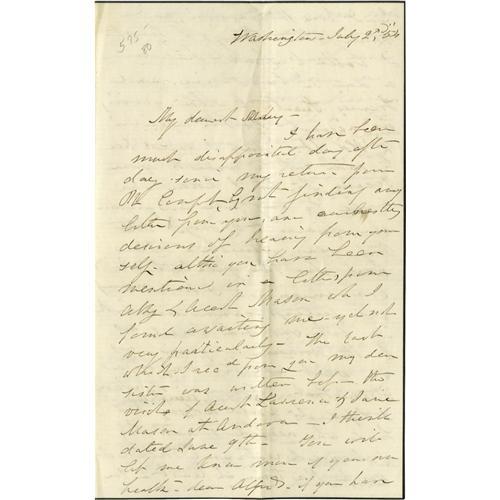 595
80
Washington - July 2nd, 54
My dearest Mary -
I have been
much disappointed day after
day since my return from
Old Comfort by not finding any
letter from you, and earnestly
desirous of hearing from your
self - altho' you have been
mentioned in a letter from
Abby & Aunt Mason wh I
found awaiting me - yet not
very particularly - The last
which I rec'd from you my dear
sister was written before the
visit of Aunt Lawrence & Jane
Mason at Andover - I think
dated June 9th - You will
let me know more of your own
health - dear Alfred - if you have